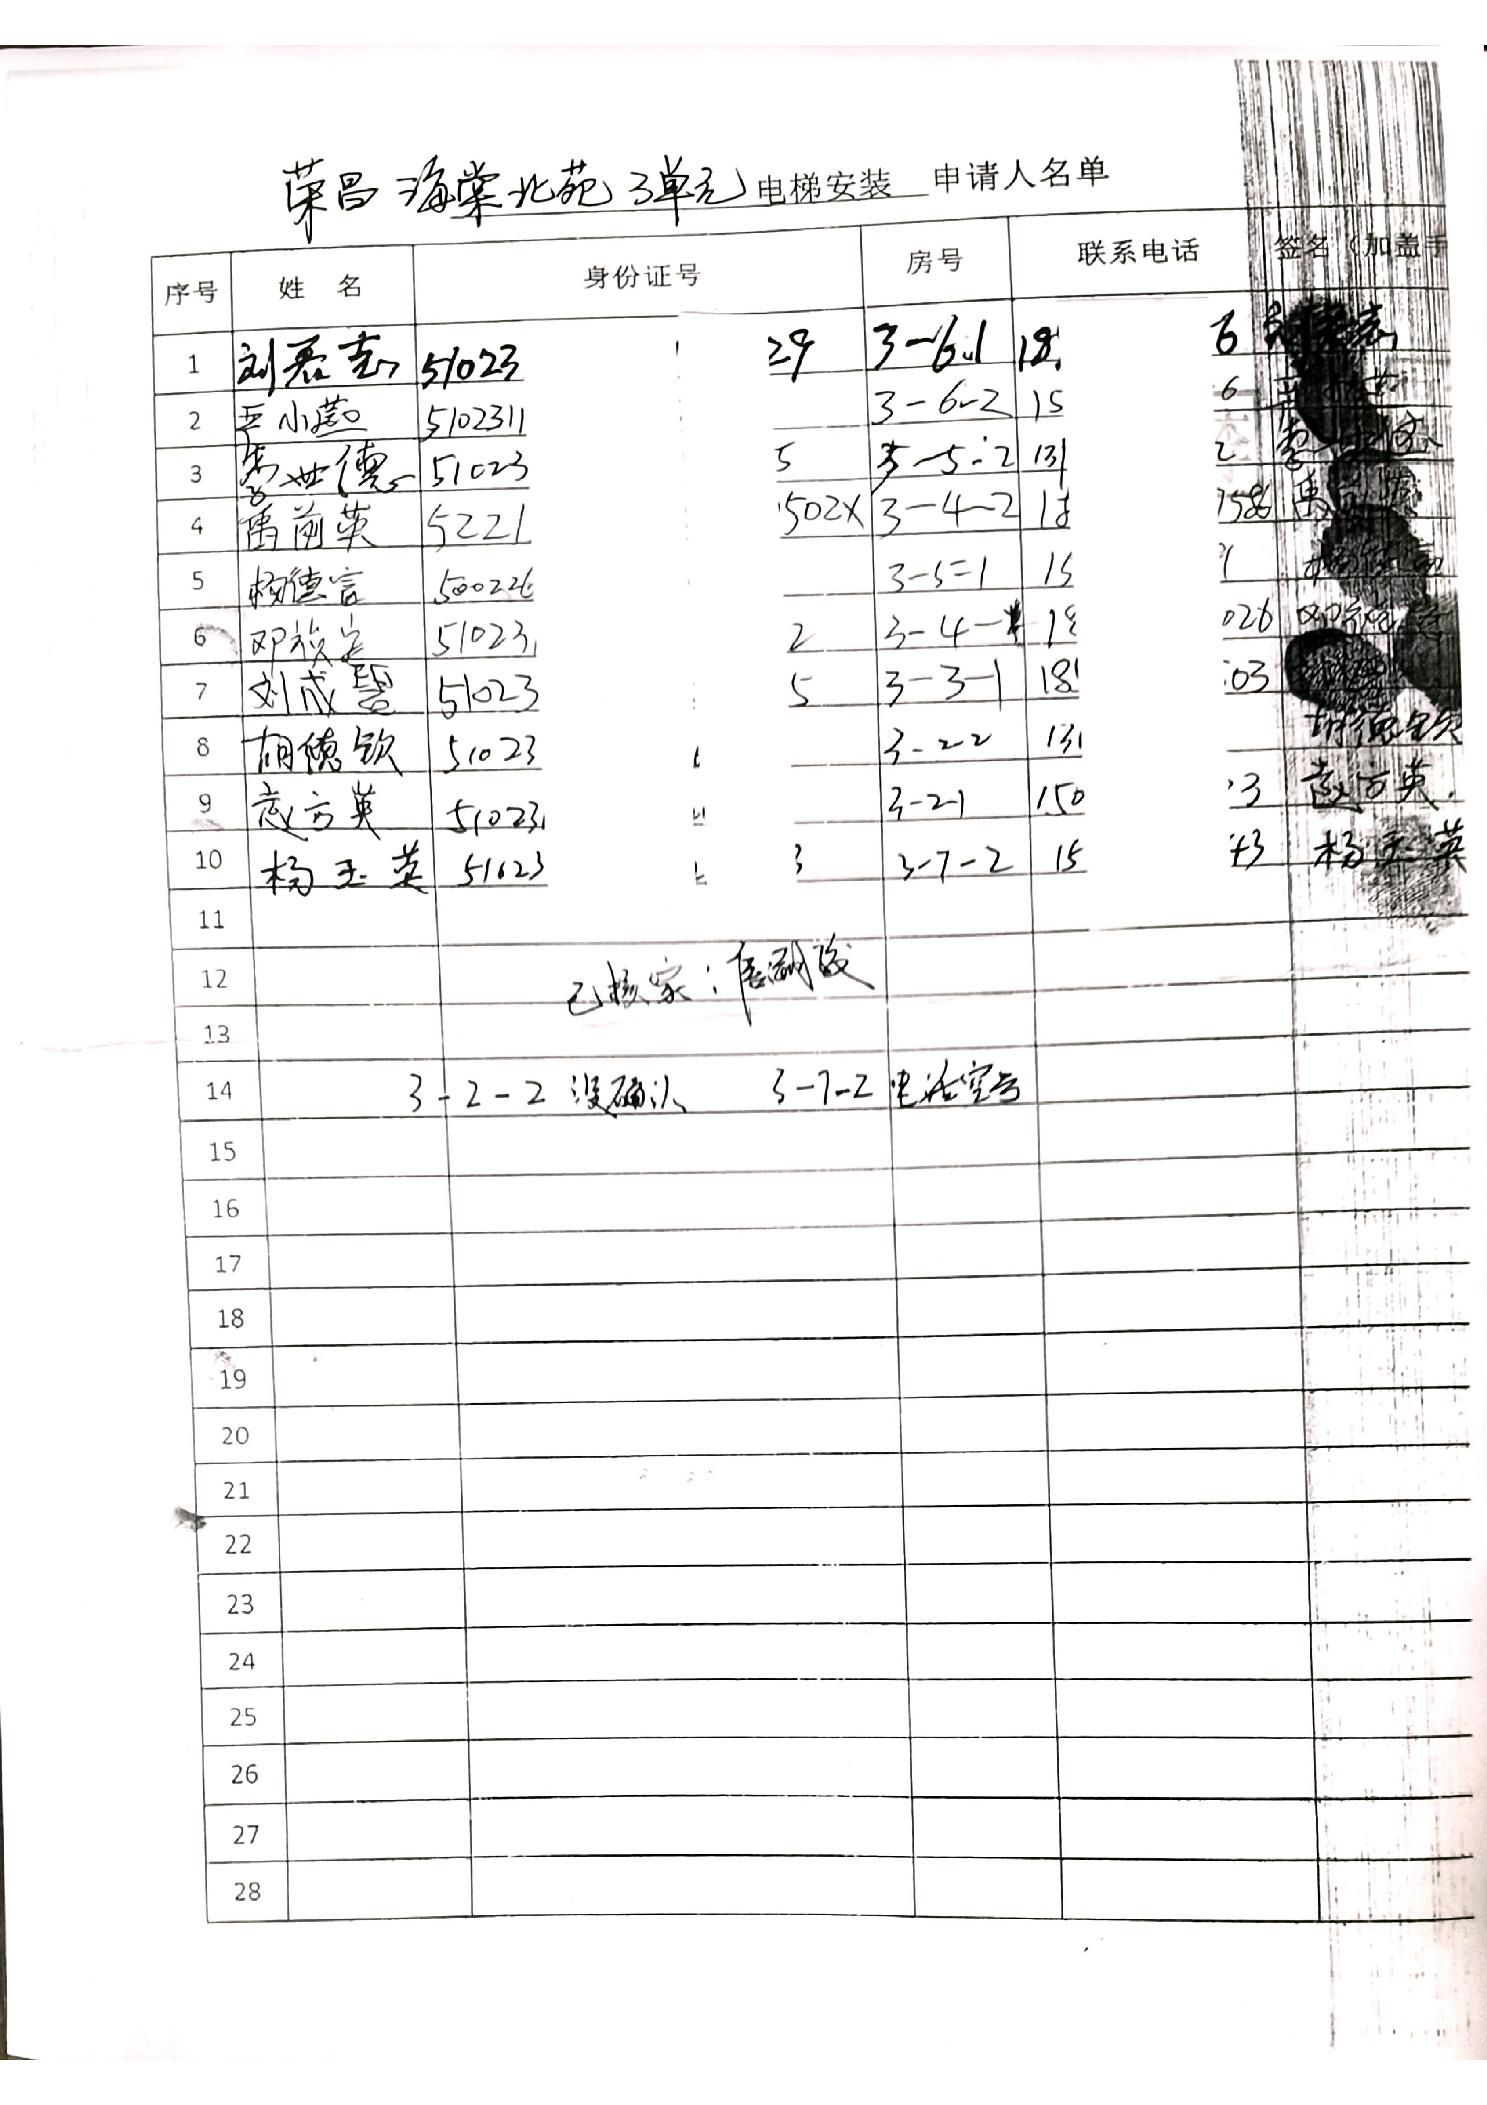 荣昌海棠北苑3单元电梯安装 申请人名单
序号 姓 名 身份证号 房号 联系电话 签名（加盖手
1 刘君志 51023 29 3-6-1 18 6
2 小燕 5102311 3-6-2 15 6
3 李世德 51023 5 3-5-2 131 2 李世德
4 禹前英 5221 502X 3-4-2 18 586 禹
5 杨德言 500226 3-5-1 15 1
6 邓 51023 2 3-4- 18 026 邓
7 刘成 51023 5 3-3-1 181 03
8 胡德钦 51023 3-2-2 131 胡德钦
9 方英 51023 3-2-1 150 3 方英
10 杨玉英 51023 3 3-7-2 15 43 杨玉英
11
12 已核实：
13
14 3-2-2 没确认 3-7-2 电话空号
15
16
17
18
19
20
21
22
23
24
25
26
27
28